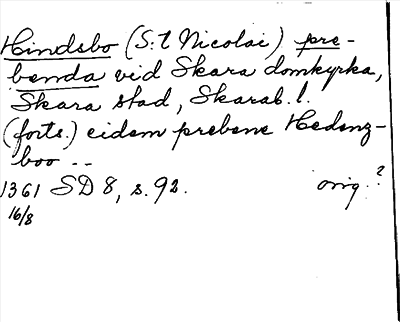 Hindsbo (S:t Nicolai) pre-
benda vid Skara domkyrka,
Skara stad, Skarab. l.
(forts.) eidem prebene Hedenz-
boo --
1361 SD 8, s. 92. orig.?
16/8